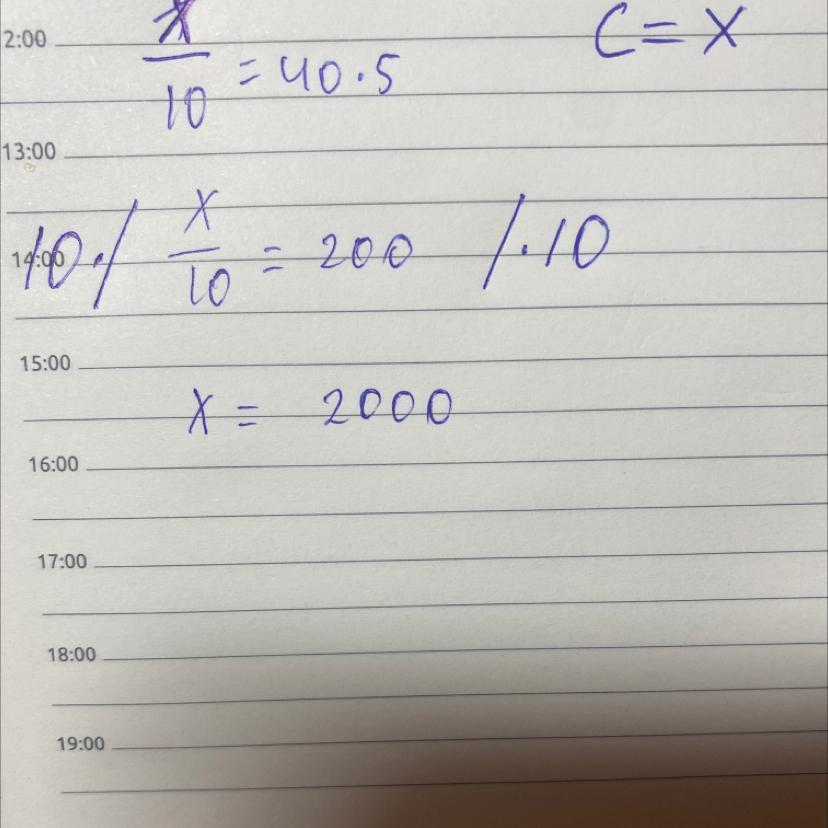 2:00 x/10 = 40·5 C = X
13:00
14:00 10·/ x/10 = 200 /·10
15:00
x = 2000
16:00
17:00
18:00
19:00